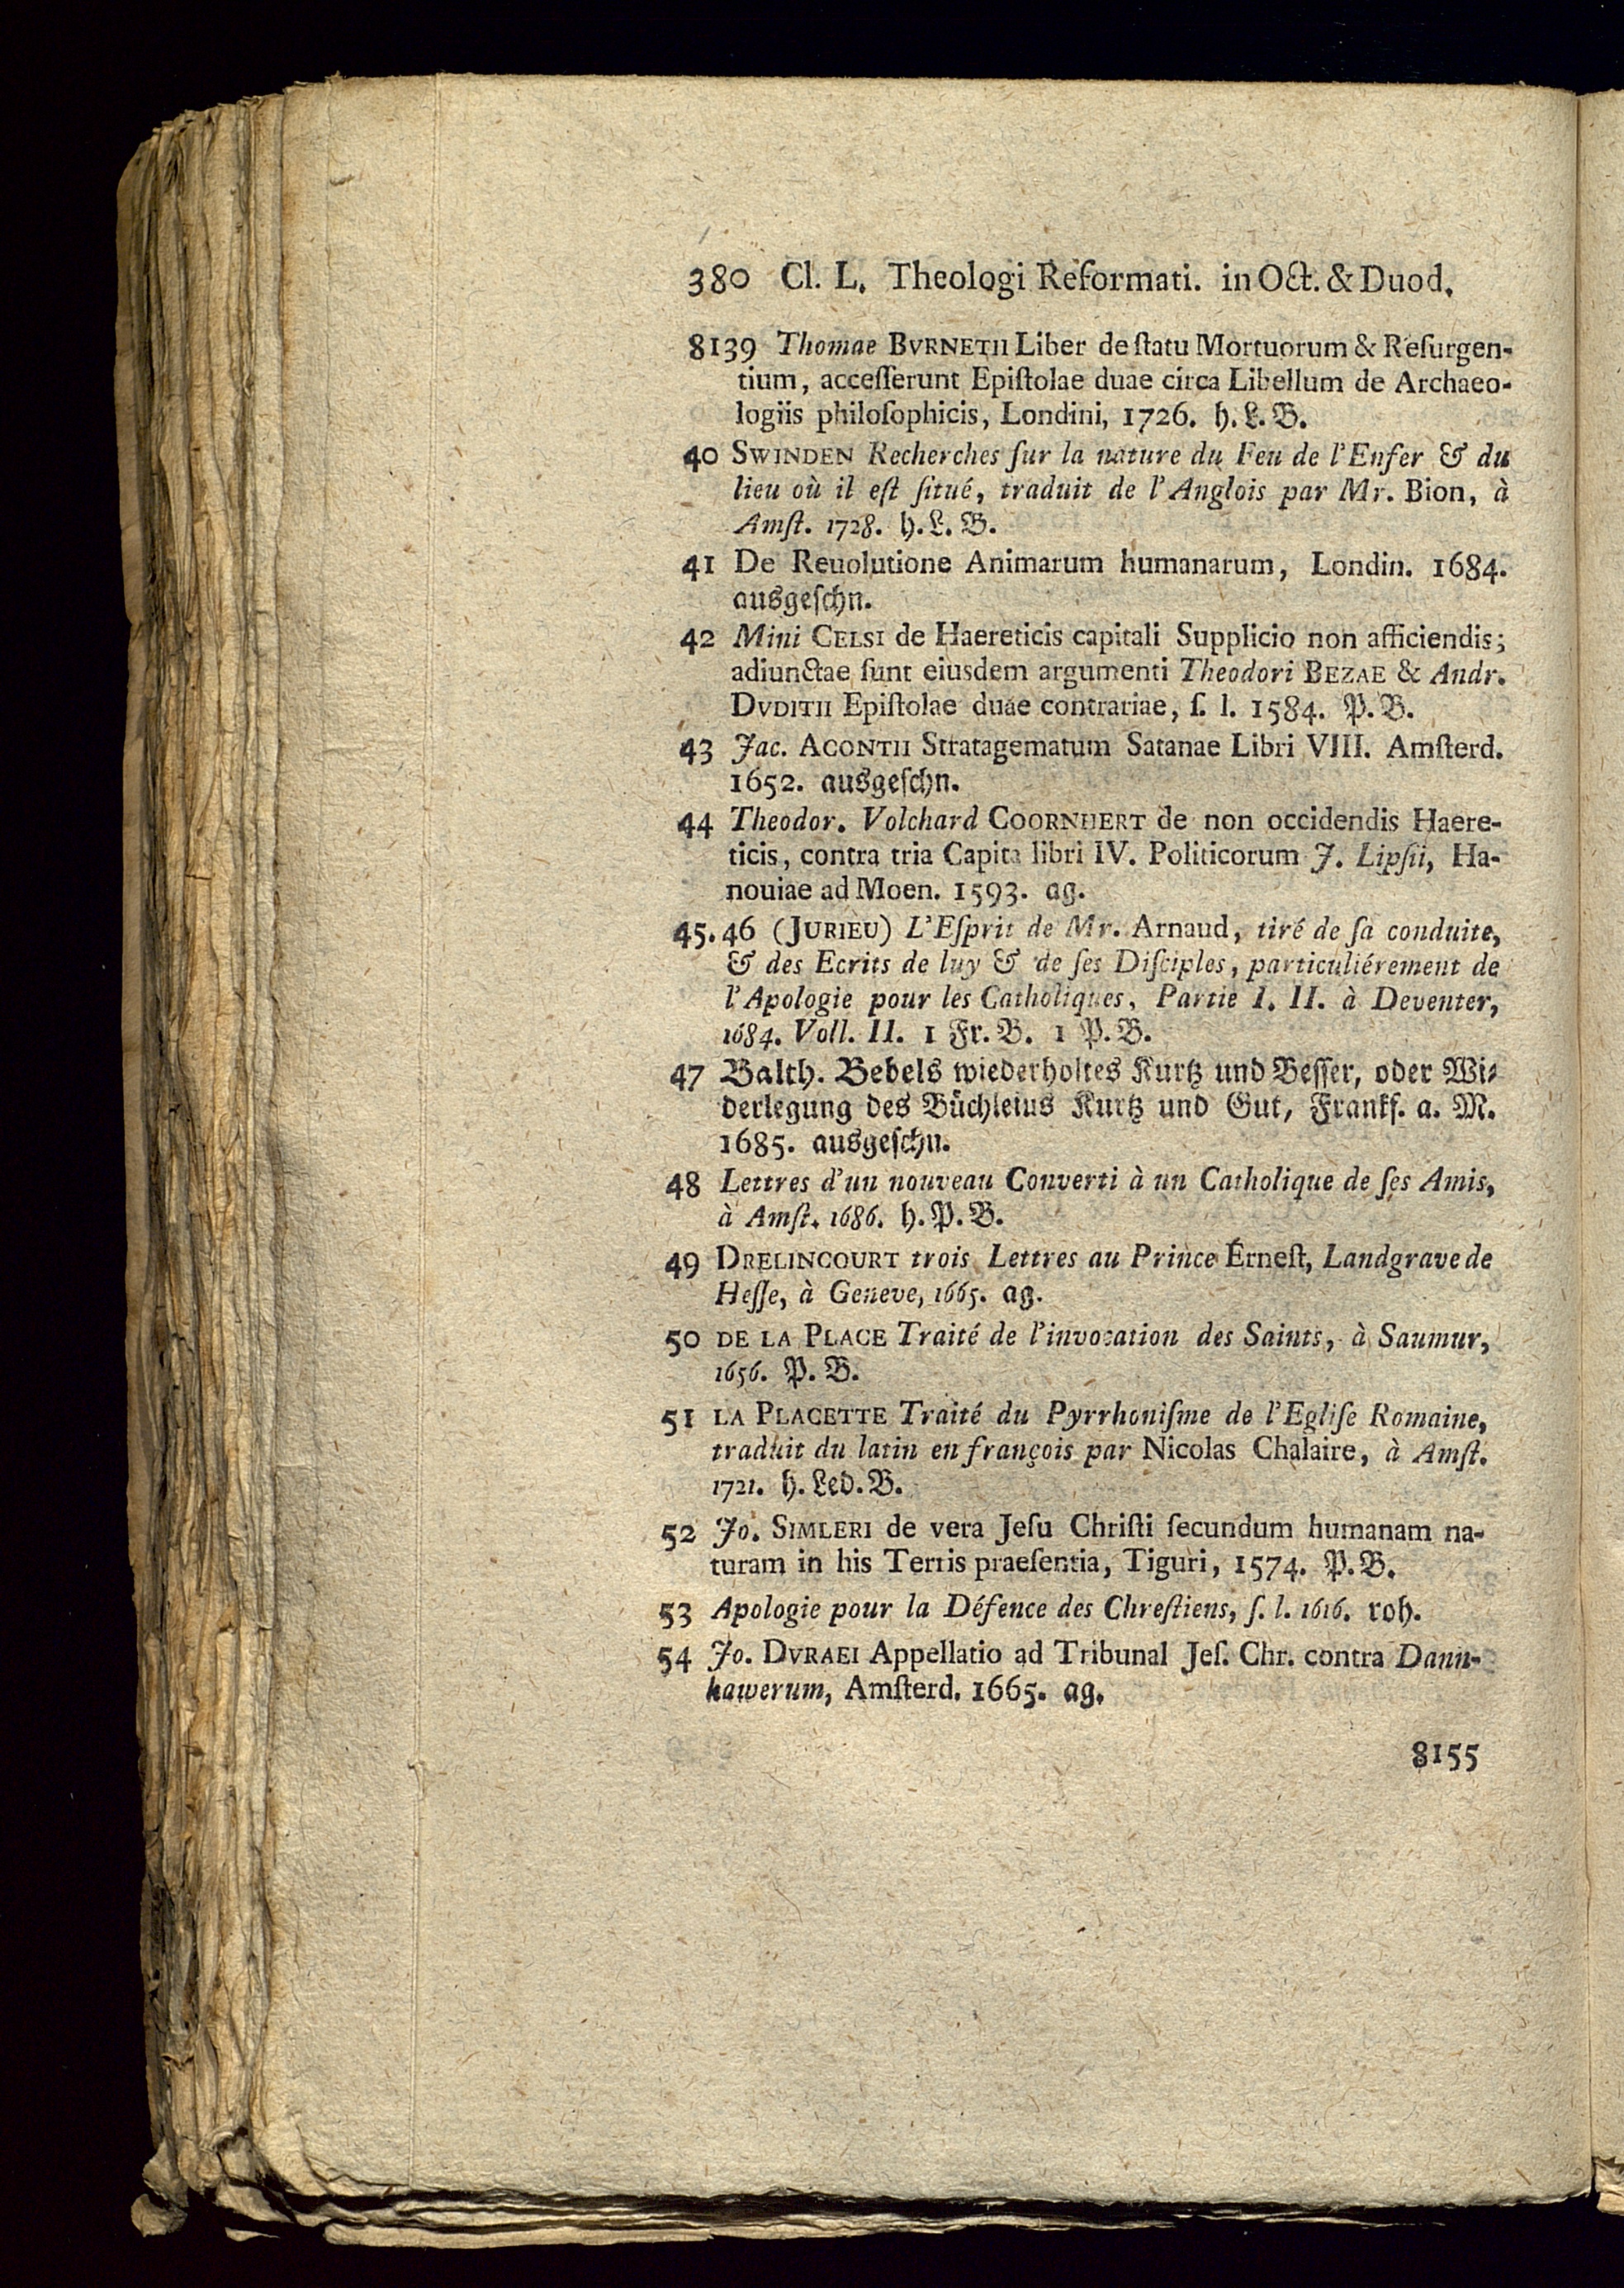 380 Cl. L. Theologi Reformati. in Oct. & Duod.
8139 Thomae BVRNETII Liber de ſtatu Mortuorum & Reſurgen-
tium, acceſſerunt Epiſtolae duae circa Libellum de Archaeo-
logiis philoſophicis, Londini, 1726. h. L. B.
40 SWINDEN Recherches ſur la nature du Feu de l'Enfer & du
lieu où il eſt ſitué, traduit de l'Anglois par Mr. Bion, à
Amſt. 1728. h. L. B.
41 De Reuolutione Animarum humanarum, Londin. 1684.
ausgeſchn.
42 Mini CELSI de Haereticis capitali Supplicio non afficiendis;
adiunctae ſunt eiusdem argumenti Theodori BEZAE & Andr.
DVDITII Epiſtolae duae contrariae, ſ. l. 1584. P. B.
43 Jac. ACONTII Stratagematum Satanae Libri VIII. Amſterd.
1652. ausgeſchn.
44 Theodor. Volchard COORNHERT de non occidendis Haere-
ticis, contra tria Capita libri IV. Politicorum J. Lipſii, Ha-
nouiae ad Moen. 1593. ag.
45. 46 (JURIEU) L'Eſprit de Mr. Arnaud, tiré de ſa conduite,
& des Ecrits de luy & de ſes Diſciples, particuliérement de
l'Apologie pour les Catholiques, Partie I. II. à Deventer,
1684. Voll. II. 1 Fr. B. 1 P. B.
47 Balth. Bebels wiederholtes Kurtz und Beſſer, oder Wi-
derlegung des Büchleius Kurtz und Gut, Frankf. a. M.
1685. ausgeſchn.
48 Lettres d'un nouveau Converti à un Catholique de ſes Amis,
à Amſt. 1686. h. P. B.
49 DRELINCOURT trois Lettres au Prince Erneſt, Landgrave de
Heſſe, à Geneve, 1665. ag.
50 DE LA PLACE Traité de l'invocation des Saints, à Saumur,
1656. P. B.
51 LA PLACETTE Traité du Pyrrhoniſme de l'Egliſe Romaine,
traduit du latin en françois par Nicolas Chalaire, à Amſt.
1721. h. Led. B.
52 Jo. SIMLERI de vera Jeſu Chriſti ſecundum humanam na-
turam in his Terris praeſentia, Tiguri, 1574. P. B.
53 Apologie pour la Défence des Chreſtiens, ſ. l. 1616. roh.
54 Jo. DVRAEI Appellatio ad Tribunal Jeſ. Chr. contra Dann-
hawerum, Amſterd. 1665. ag.
8155